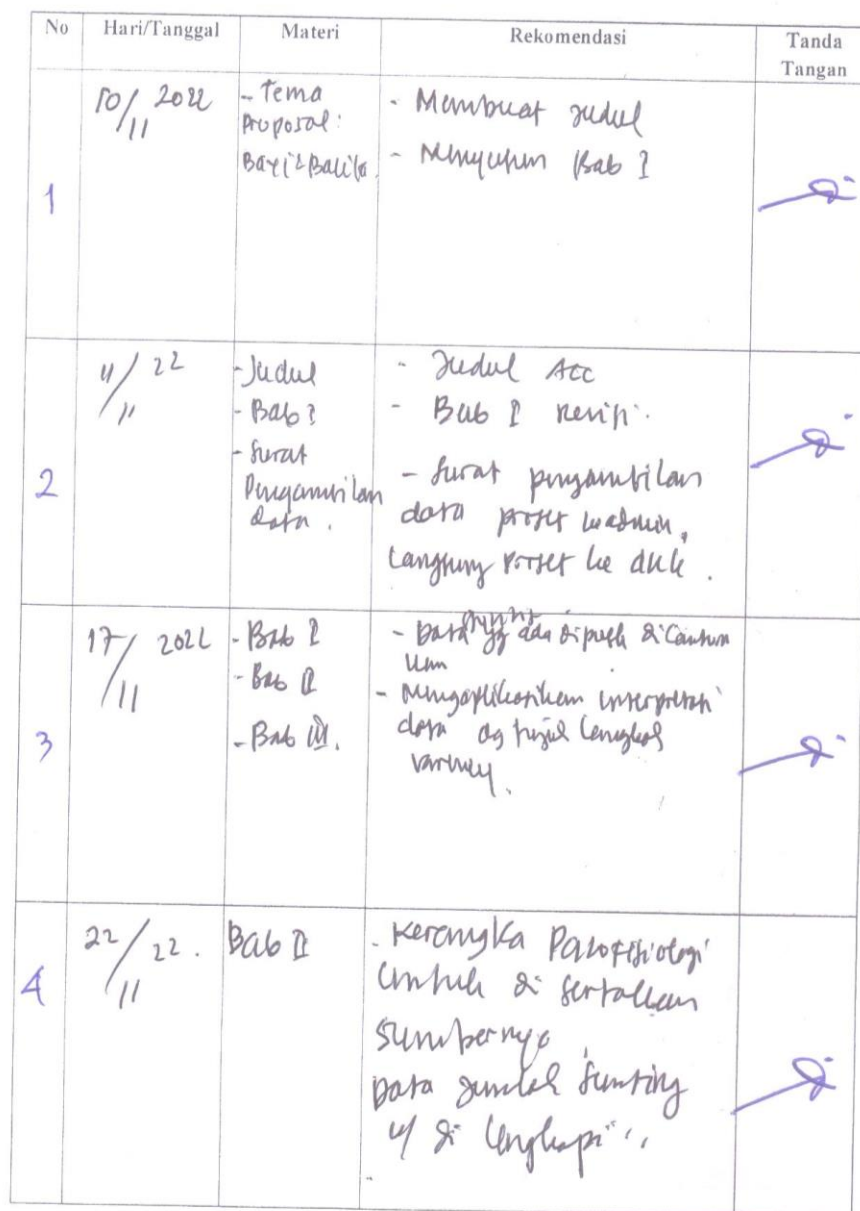 No Hari/Tanggal Materi Rekomendasi Tanda Tangan
1
10/11 2022
- Tema
Proposal:
Bayi & Balita.
- Membuat Judul
- Menyusun Bab I
2
11/11 22
- Judul
- Bab I
- Surat
Pengambilan
data.
- Judul Acc
- Bab I Revisi.
- Surat pengambilan
data proses
Langsung proses ke dkk.
3
17/11 2022
- Bab I
- Bab II
- Bab III.
- Data yg ada di di Cantum
kan
- Mengaplikasikan interpretasi
data dg tujuh langkah
varney.
4
22/11 22.
Bab II
- Kerangka Patofisiologi
Untuk di sertakan
Sumbernya
Data Jumlah Stunting
u/ di lengkapi